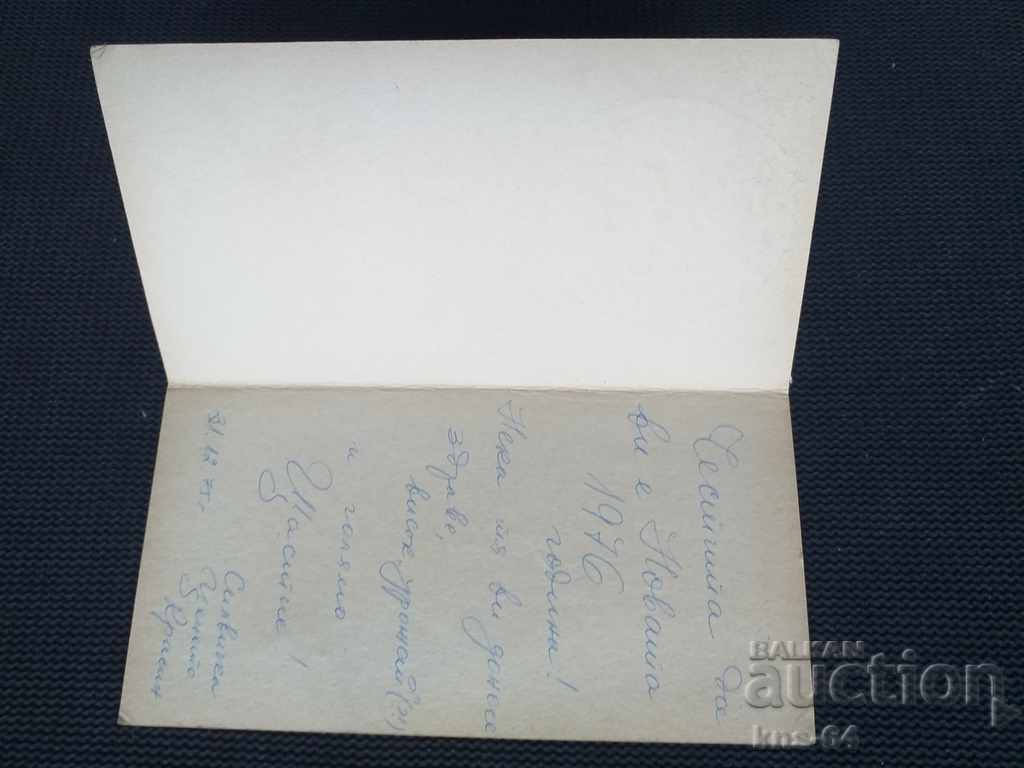 Честита да
ви е Новата
1976
година!
Нека тя ви донесе
здраве,
висок урожай (?),
и голямо
Щастие!
31.12.75г.
Силвия
Ценито
Красим
BALKAN
auction
kns-64